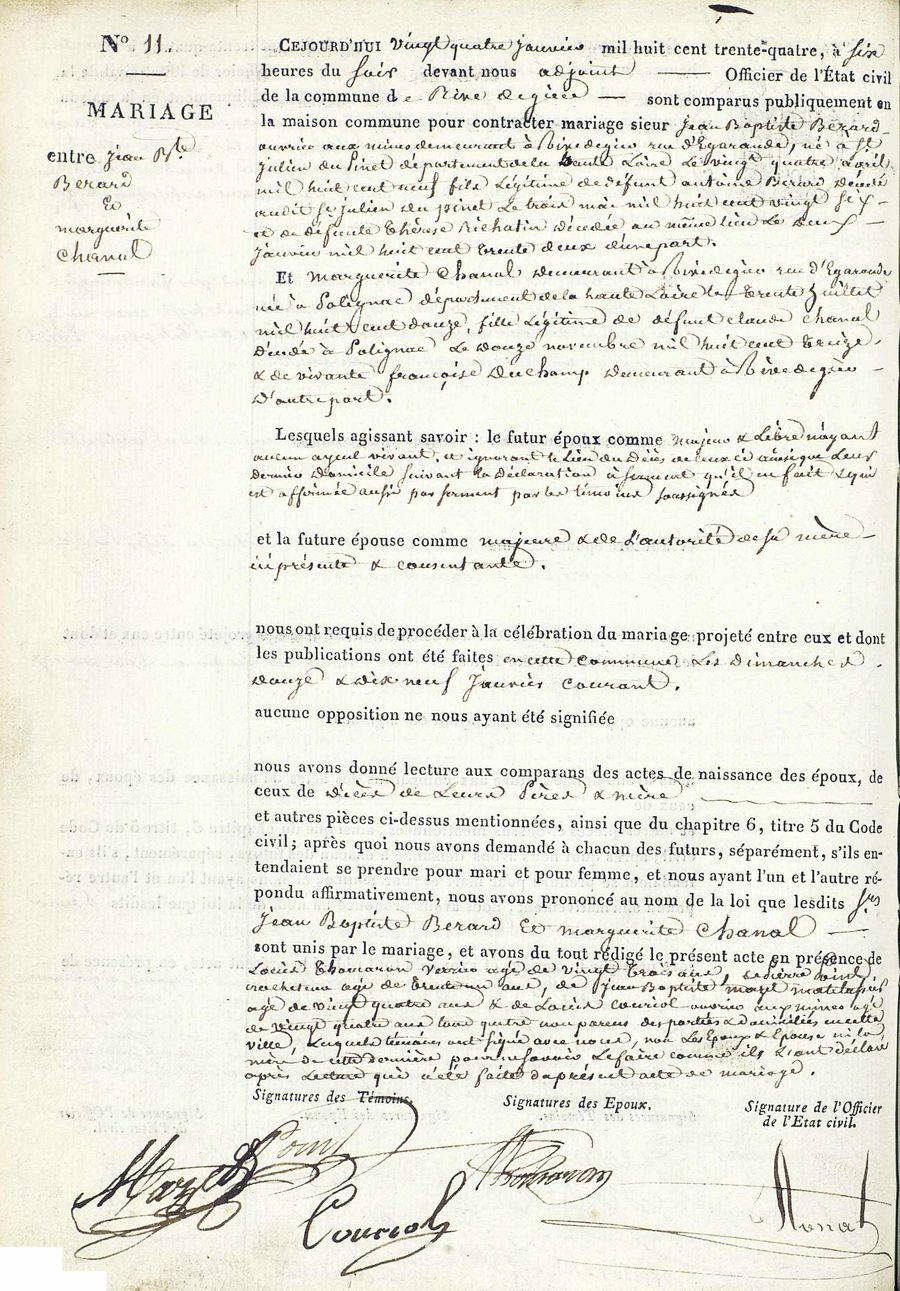 N° 11.
MARIAGE
entre Jean Bte
Berard
Et
marguerite
Chanal
CEJOURD'HUI vingt quatre janvier mil huit cent trente-quatre, à six
heures du soir devant nous adjoint — Officier de l'État civil
de la commune de Rive de gier — sont comparus publiquement en
la maison commune pour contracter mariage sieur Jean Baptiste Berard
ouvrier aux mines demeurant à Rive de gier rue d'Egarande, né à St
Julien du Pinet département de la haute Loire Le vingt quatre avril
mil huit cent neuf fils Légitime de defunt antoine Berard décédé
audit St julien du pinet Le trois mai mil huit cent vingt six
et de defunte thérèse Richatin décédée au même lieu Le deux
Janvier mil huit cent trente deux d'une part.
Et Marguerite Chanal demeurant à Rive de gier rue d'Egarande
née à Polignac département de la haute Loire le trente Juillet
mil huit cent douze, fille légitime de défunt claude Chanal
décédé à Polignac Le douze novembre mil huit cent treize,
& de vivante françoise Duchamp demeurant à Rive de gier
D'autre part.
Lesquels agissant savoir : le futur époux comme majeur & Libre n'ayant
aucun ayeul vivant, et ignorant le Lieu du Décès de ceux ci ainsi que Leur
dernier domicile suivant la Déclaration à serment qu'il en fait & qui
est affirmée aussi par serment par les témoins soussignés
et la future épouse comme majeure & de l'autorité de sa mère
ici présente & consentante.
nous ont requis de procéder à la célébration du mariage projeté entre eux et dont
les publications ont été faites en cette commune Les Dimanches
douze & dix neuf Janvier courant.
aucune opposition ne nous ayant été signifiée
nous avons donné lecture aux comparans des actes de naissance des époux, de
ceux de décès de Leurs Pères & mère
et autres pièces ci-dessus mentionnées, ainsi que du chapitre 6, titre 5 du Code
civil; après quoi nous avons demandé à chacun des futurs, séparément, s'ils en-
tendaient se prendre pour mari et pour femme, et nous ayant l'un et l'autre ré-
pondu affirmativement, nous avons prononcé au nom de la loi que lesdits Srs
Jean Baptiste Berard Et marguerite Chanal —
sont unis par le mariage, et avons du tout rédigé le présent acte en présence de
Louis Thomaron verrier agé de vingt trois ans, de pierre
agé de trente ans, de Jean Baptiste mazet
agé de vingt quatre ans & de Louis Couriol ouvrier aux mines agé
de vingt quatre ans tous quatre non parens des parties & domiciliés en cette
ville, Lesquels témoins ont signé avec nous, non Les Epoux & Epouse ni la
mère de cette dernière pour ne savoir Le faire comme ils L'ont déclaré
après Lecture qui a été faite du présent acte de mariage.
Signatures des Témoins.
Signatures des Epoux.
Signature de l'Officier
de l'Etat civil.
Mazet
Thomaron
Couriol